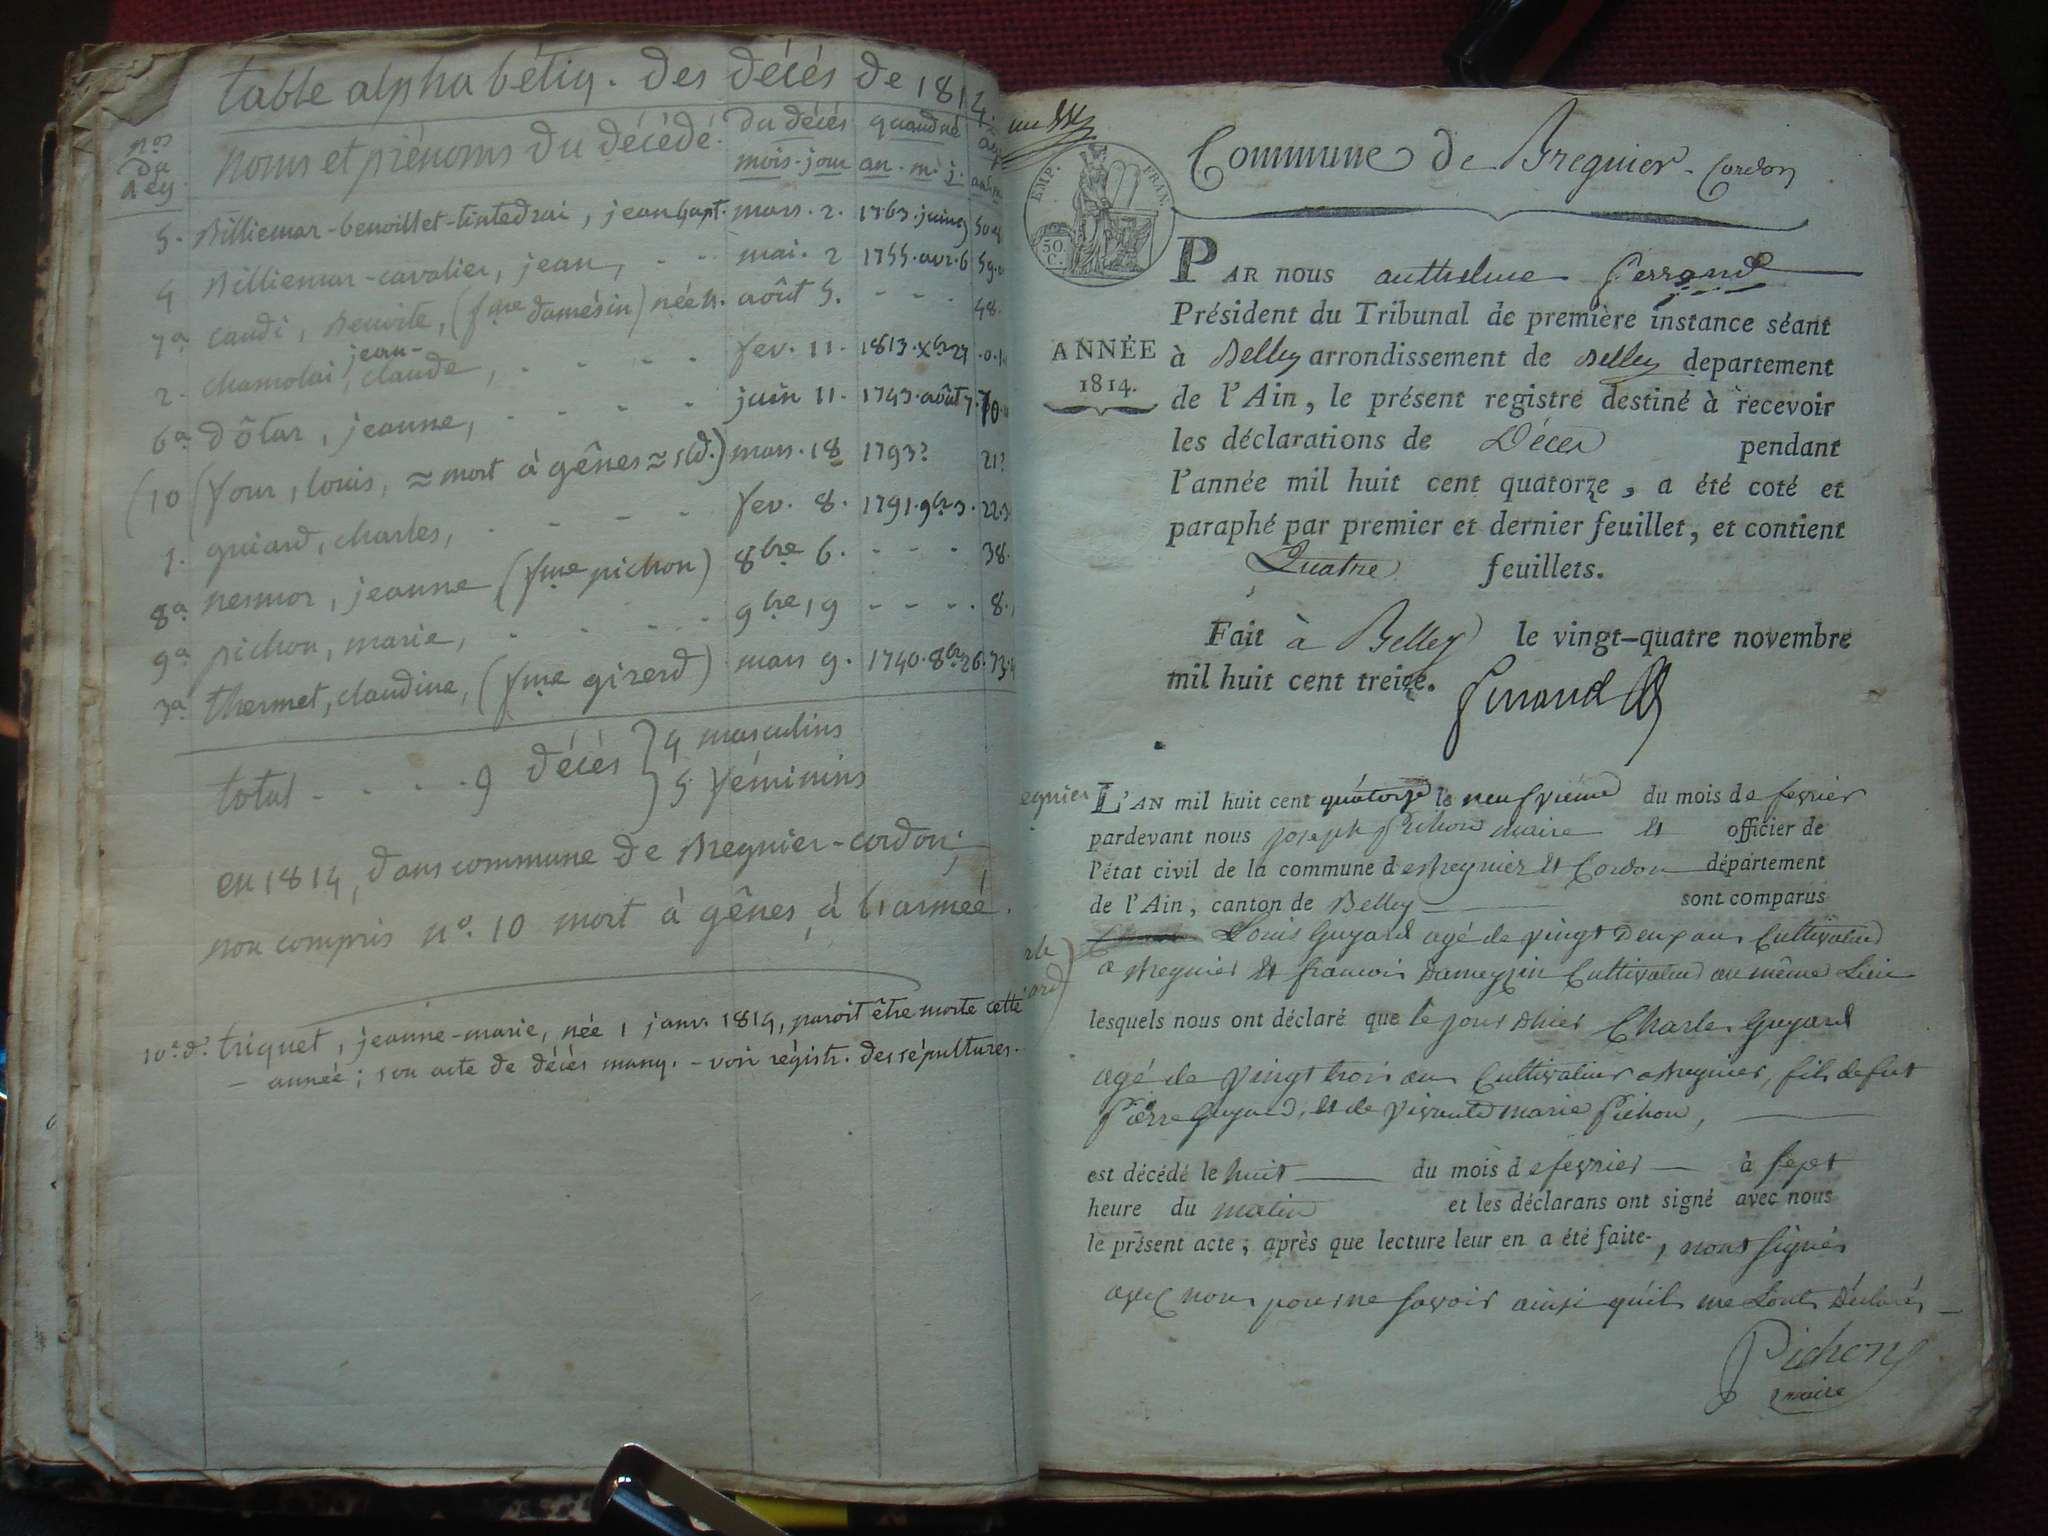 table alphabétiq. des décés de 1814.
nos du reg.
noms et prénoms du décédé.
du décés
mois. jour
quand né
an. m. j.
5. Billiemar-benoillet-tintedrai, jean bapt. mars. 2. 1763. juin
4 Billiemar-cavalier, jean, - - mai. 2 1755. avr. 6 59.
7a caudi, Benoite, (fme damésin) née h. août 5. - - - 48.
2. chamolai, jean-claude, - - - - fev. 11. 1813. Xbre 27 .0.1
6a dôtar, jeanne, - - - - juin 11. 1743. août 7. 70.
(10 (four, louis, ≈ mort à gênes ≈ sld.) mars. 18 1793? 21?
1. guiard, charles, - - - - fev. 8. 1791. 9bre 3. 22.3
8a nesmoz, jeanne (fme pichon) 8bre 6. - - - 38.
9a pichon, marie, - - - - 9bre 19 - - - 8.
3a thermet, claudine, (fme girerd) mars 9. 1740. 8bre 26. 73.4
total - - - - 9 décés } 4 masculins
5 féminins
en 1814, dans commune de Bregnier-cordon;
non compris no. 10 mort à gênes, à l'armée.
triquet, jeanne-marie, née 1 janv. 1814, paroit être morte cette
- année; son acte de décès manq. - voir régistr. des sépultures.
Commune de Bregnier. Cordon
EMP. FRAN.
50 C.
ANNÉE
1814.
PAR NOUS anthelme ferrand
Président du Tribunal de première instance séant
à Belley arrondissement de Belley departement
de l'Ain, le présent registre destiné à recevoir
les déclarations de Décès pendant
l'année mil huit cent quatorze, a été coté et
paraphé par premier et dernier feuillet, et contient
Quatre feuillets.
Fait à Belley le vingt-quatre novembre
mil huit cent treize.
egnier L'AN mil huit cent quatorze le neufvième du mois de fevrier
pardevant nous joseph Pichon maire et officier de
l'état civil de la commune de Bregnier et Cordon département
de l'Ain, canton de Belley sont comparus
Louis Guyard agé de vingt Deux ans Cultivateur
a Bregnier et francois Dameyzin Cultivateur au même Lieu
lesquels nous ont déclaré que le jour dhier Charles Guyard
agé de vingt trois ans Cultivateur a Bregnier, fils de fut
Pierre Guyard, et de vivante marie Pichon,
est décédé le huit du mois de fevrier à sept
heure du matin et les déclarans ont signé avec nous
le présent acte, après que lecture leur en a été faite, nont signés
avec nous pour ne savoir ainsi qu'ils me Lont Déclarés
Pichon
maire